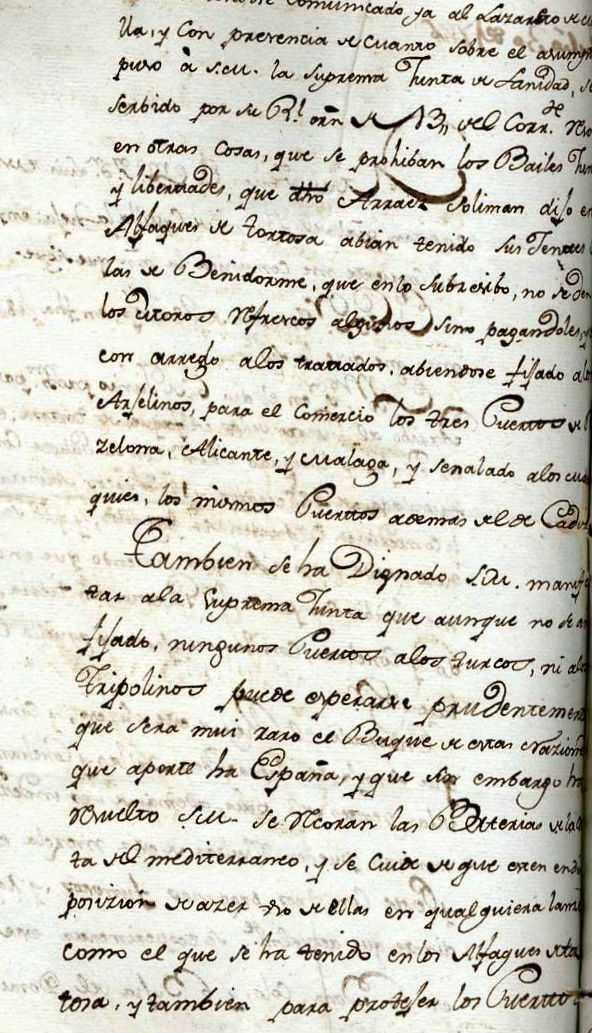 comunicado ya al Lazareto de
lla, y Con prevencia de cuanto sobre el asump
puso à S.M. la Suprema Junta de Sanidad, se
serbido por su Rl. orn de 13, del Corr.te
en otras Cosas, que se prohiban los Bailes
y libertades, que dho Arraez Soliman dijo en
Alfaques de tortosa abian tenido sus
las de Benidorme, que en lo subcesibo, no se den
los viveros Refrescos algunos sino pagandoles,
con arreglo a los tratados, abiendose fijado a los
Arjelinos, para el Comercio los tres Puertos de
zelona, Alicante, y Malaga, y señalado a los
quies, los mismos Puertos ademas del de Cadiz
Tambien se ha Dignado S.M. manifes
tar a la Suprema Junta que aunque no se an
fijado, ningunos Puertos a los turcos, ni a los
Tripolinos puede esperarse prudentemen
que sera mui raro el Buque de estas Nazion
que aporte ha España, y que sin embargo ha
resuelto S.M. se Recoran las Baterias de la
ta del mediterraneo, y se Cuide de que esten en dis
posizion de azer uso de ellas en qualquiera
como el que se ha tenido en los Alfaques de tor
tosa, y tambien para protejer los Puertos